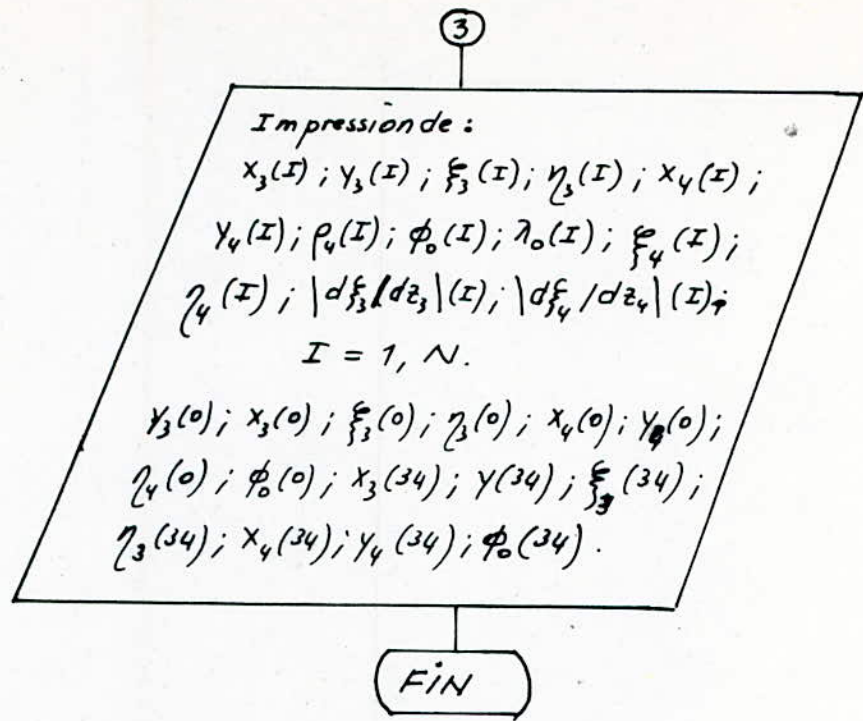 3
Impression de :
x₃(I) ; y₃(I) ; ξ₃(I) ; η₃(I) ; x₄(I) ;
y₄(I) ; ρ₄(I) ; φ₀(I) ; λ₀(I) ; ξ₄(I) ;
η₄(I) ; \dξ₃/dz₃\(I) ; \dξ₄/dz₄\(I) ;
I = 1, N.
y₃(0) ; x₃(0) ; ξ₃(0) ; η₃(0) ; x₄(0) ; y₄(0) ;
η₄(0) ; φ₀(0) ; x₃(34) ; y(34) ; ξ₃(34) ;
η₃(34) ; x₄(34) ; y₄(34) ; φ₀(34) .
FiN